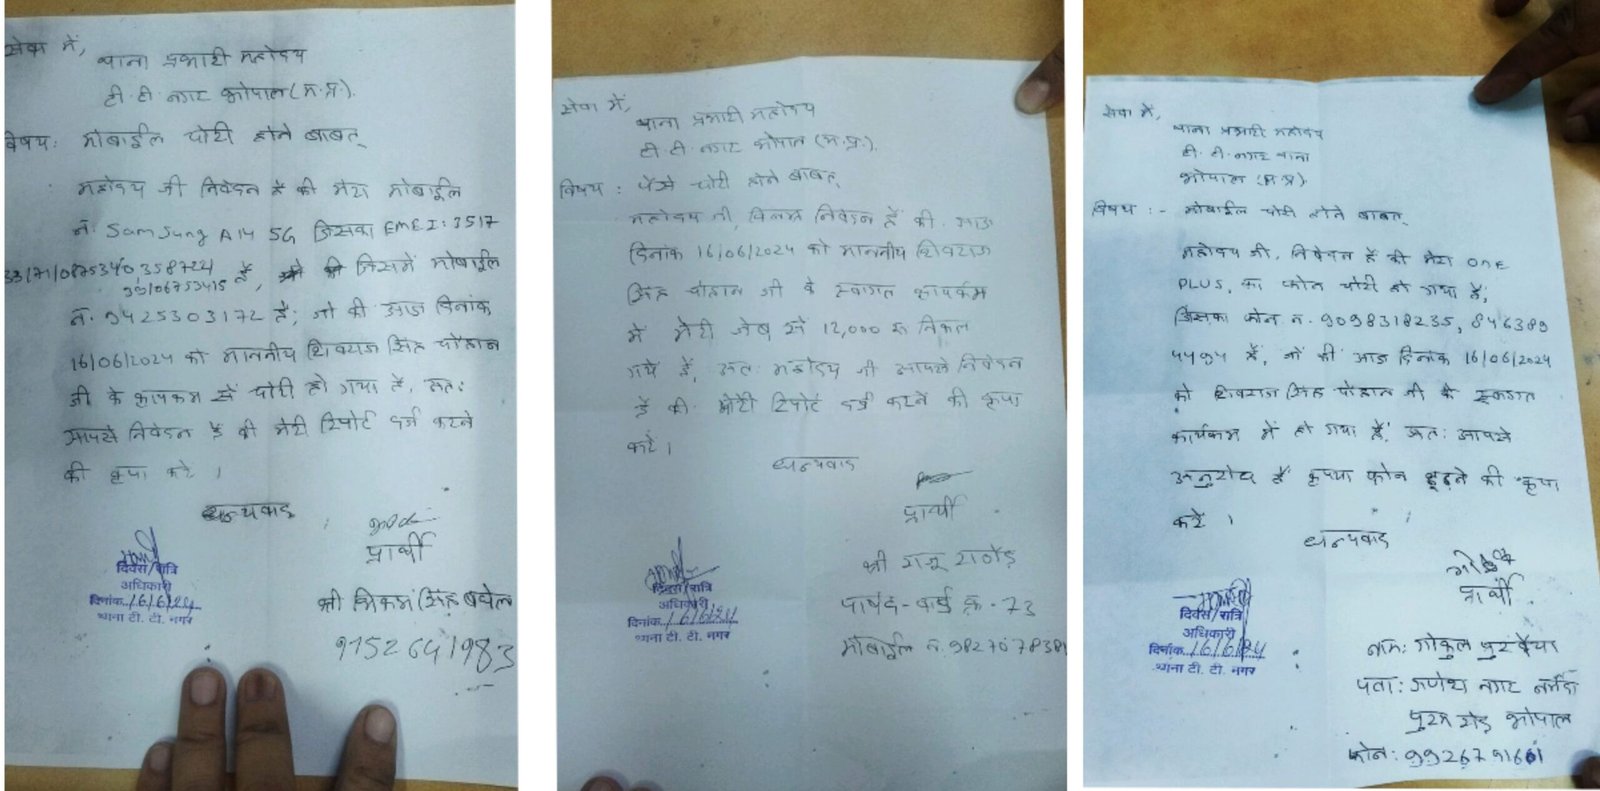 सेवा में,
थाना प्रभारी महोदय
टी. टी. नगर भोपाल (म.प्र.).
विषय: मोबाईल चोरी होने बाबत्
महोदय जी निवेदन है की मेरा मोबाईल
नं: Samsung A14 5G जिसका EMEI: 3517
है, जिसमें मोबाईल
नं. 9425303172 है; जो की आज दिनांक
16/06/2024 को माननीय शिवराज सिंह चौहान
जी के कार्यक्रम से चोरी हो गया है, अत:
आपसे निवेदन है की मेरी रिपोर्ट दर्ज करने
की कृपा करे ।
धन्यवाद
प्रार्थी
श्री विक्रम सिंह बघेल
दिवस/रात्रि
अधिकारी
दिनांक 16/6/24
थाना टी. टी. नगर
सेवा में,
थाना प्रभारी महोदय
टी. टी. नगर भोपाल (म.प्र.).
विषय : पैसे चोरी होने बाबत्
महोदय जी, विनम्र निवेदन है की. आज
दिनांक 16/06/2024 को माननीय शिवराज
सिंह चौहान जी के स्वागत कार्यक्रम
में मेरी जेब से 12,000 रु निकल
गये है, अत: महोदय जी आपसे निवेदन
है की. मेरी रिपोर्ट दर्ज करने की कृपा
करें ।
धन्यवाद
प्रार्थी
श्री राजू राठौड़
पार्षद - वार्ड क्र. - 73
मोबाईल नं. 9827078381
दिवस/रात्रि
अधिकारी
दिनांक 16/6/24
थाना टी. टी. नगर
सेवा में,
थाना प्रभारी महोदय
टी. टी. नगर थाना
भोपाल (म.प्र).
विषय : - मोबाईल चोरी होने बाबत्
महोदय जी, निवेदन है की मेरा one
PLUS, का फोन चोरी हो गया है,
जिसका फोन नं. 9098318235, 846389
4494 है, जो की आज दिनांक 16/06/2024
को शिवराज सिंह चौहान जी के स्वागत
कार्यक्रम में हो गया है, अत: आपसे
अनुरोध है कृप्या फोन ढूढ़ने की कृपा
करें ।
धन्यवाद
प्रार्थी
नाम: गोकुल पुरवैया
पता: गणेश नगर नर्मदा
पुरम रोड़ भोपाल
फोन: 9926791661
दिवस/रात्रि
अधिकारी
दिनांक 16/6/24
थाना टी. टी. नगर